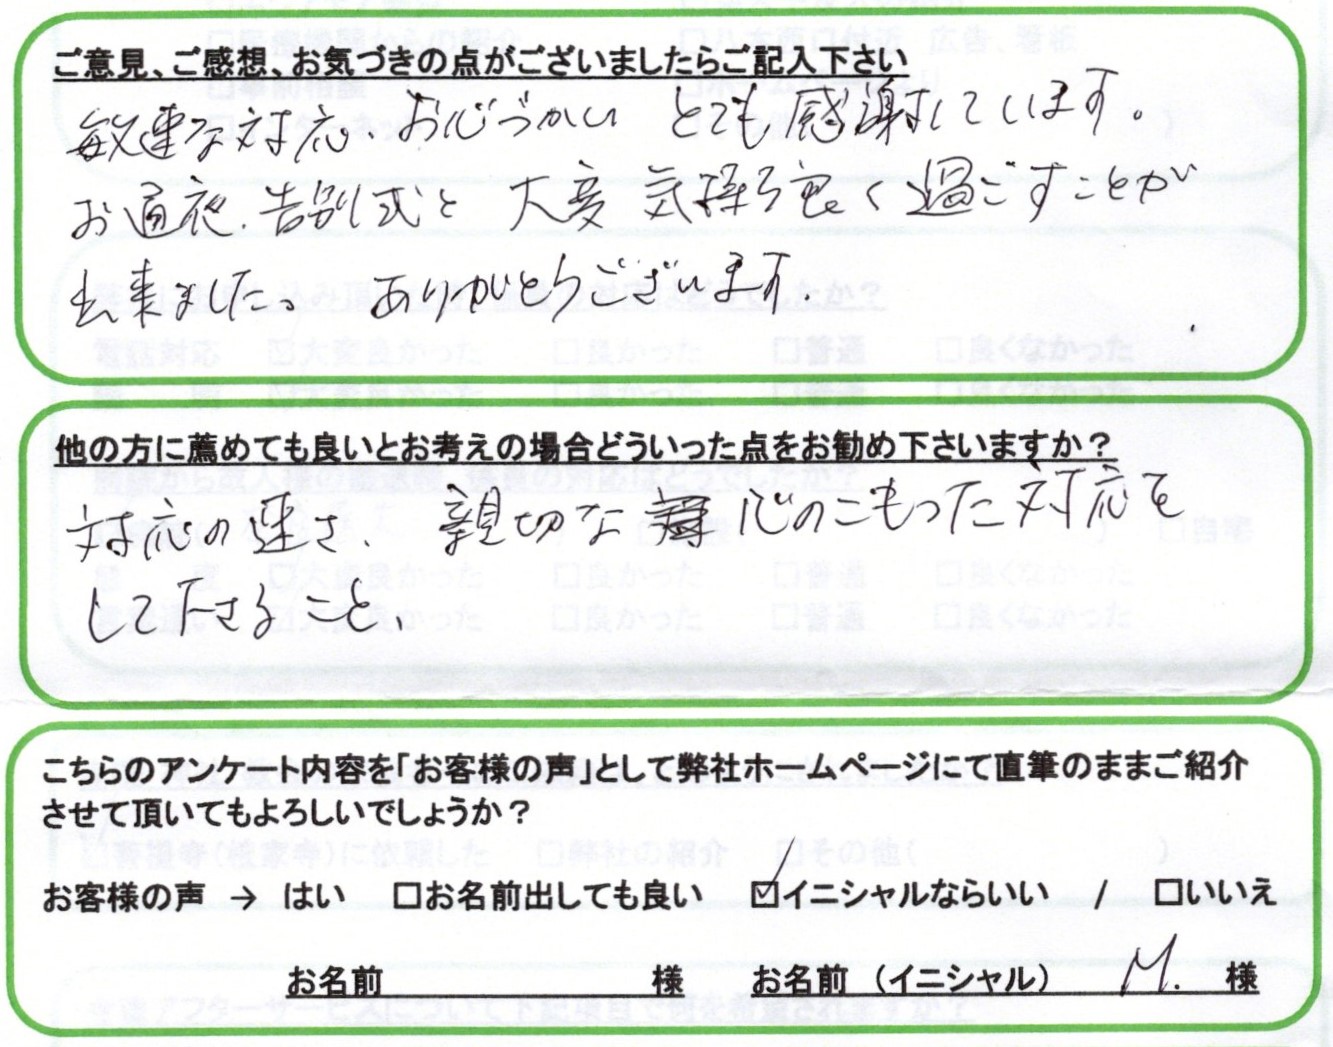 ご意見、ご感想、お気づきの点がございましたらご記入下さい
敏速な対応、お心づかい とても感謝しています。
お通夜、告別式と 大変 気持ち良く過ごすことが
出来ました。 ありがとうございます。
他の方に薦めても良いとお考えの場合どういった点をお勧め下さいますか？
対応の速さ、 親切な 心のこもった対応を
して下さること、
こちらのアンケート内容を「お客様の声」として弊社ホームページにて直筆のままご紹介
させて頂いてもよろしいでしょうか？
お客様の声 → はい □お名前出しても良い ☑イニシャルならいい / □いいえ
お名前 様 お名前（イニシャル） M. 様